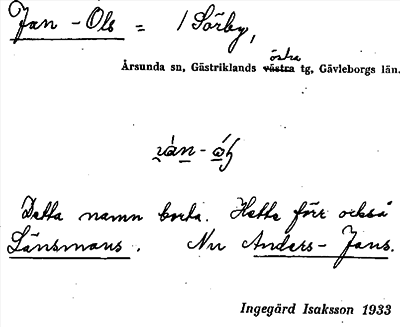 Jan-Ols = i Sörby,
östra
Årsunda sn, Gästriklands västra tg, Gävleborgs län.
Detta namn borta. Hette förr också
Länsmans. Nu Anders-Jans.
Ingegärd Isaksson 1933